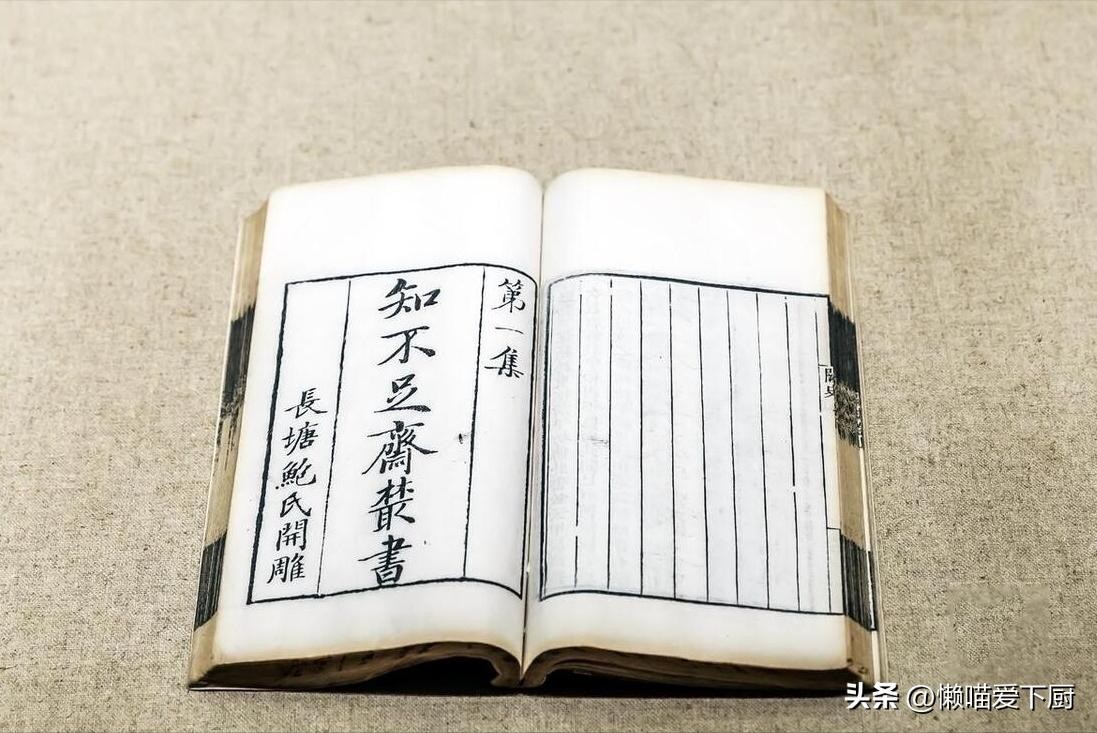 第一集
知不足齋叢書
長塘鮑氏開雕
头条 @懒喵爱下厨